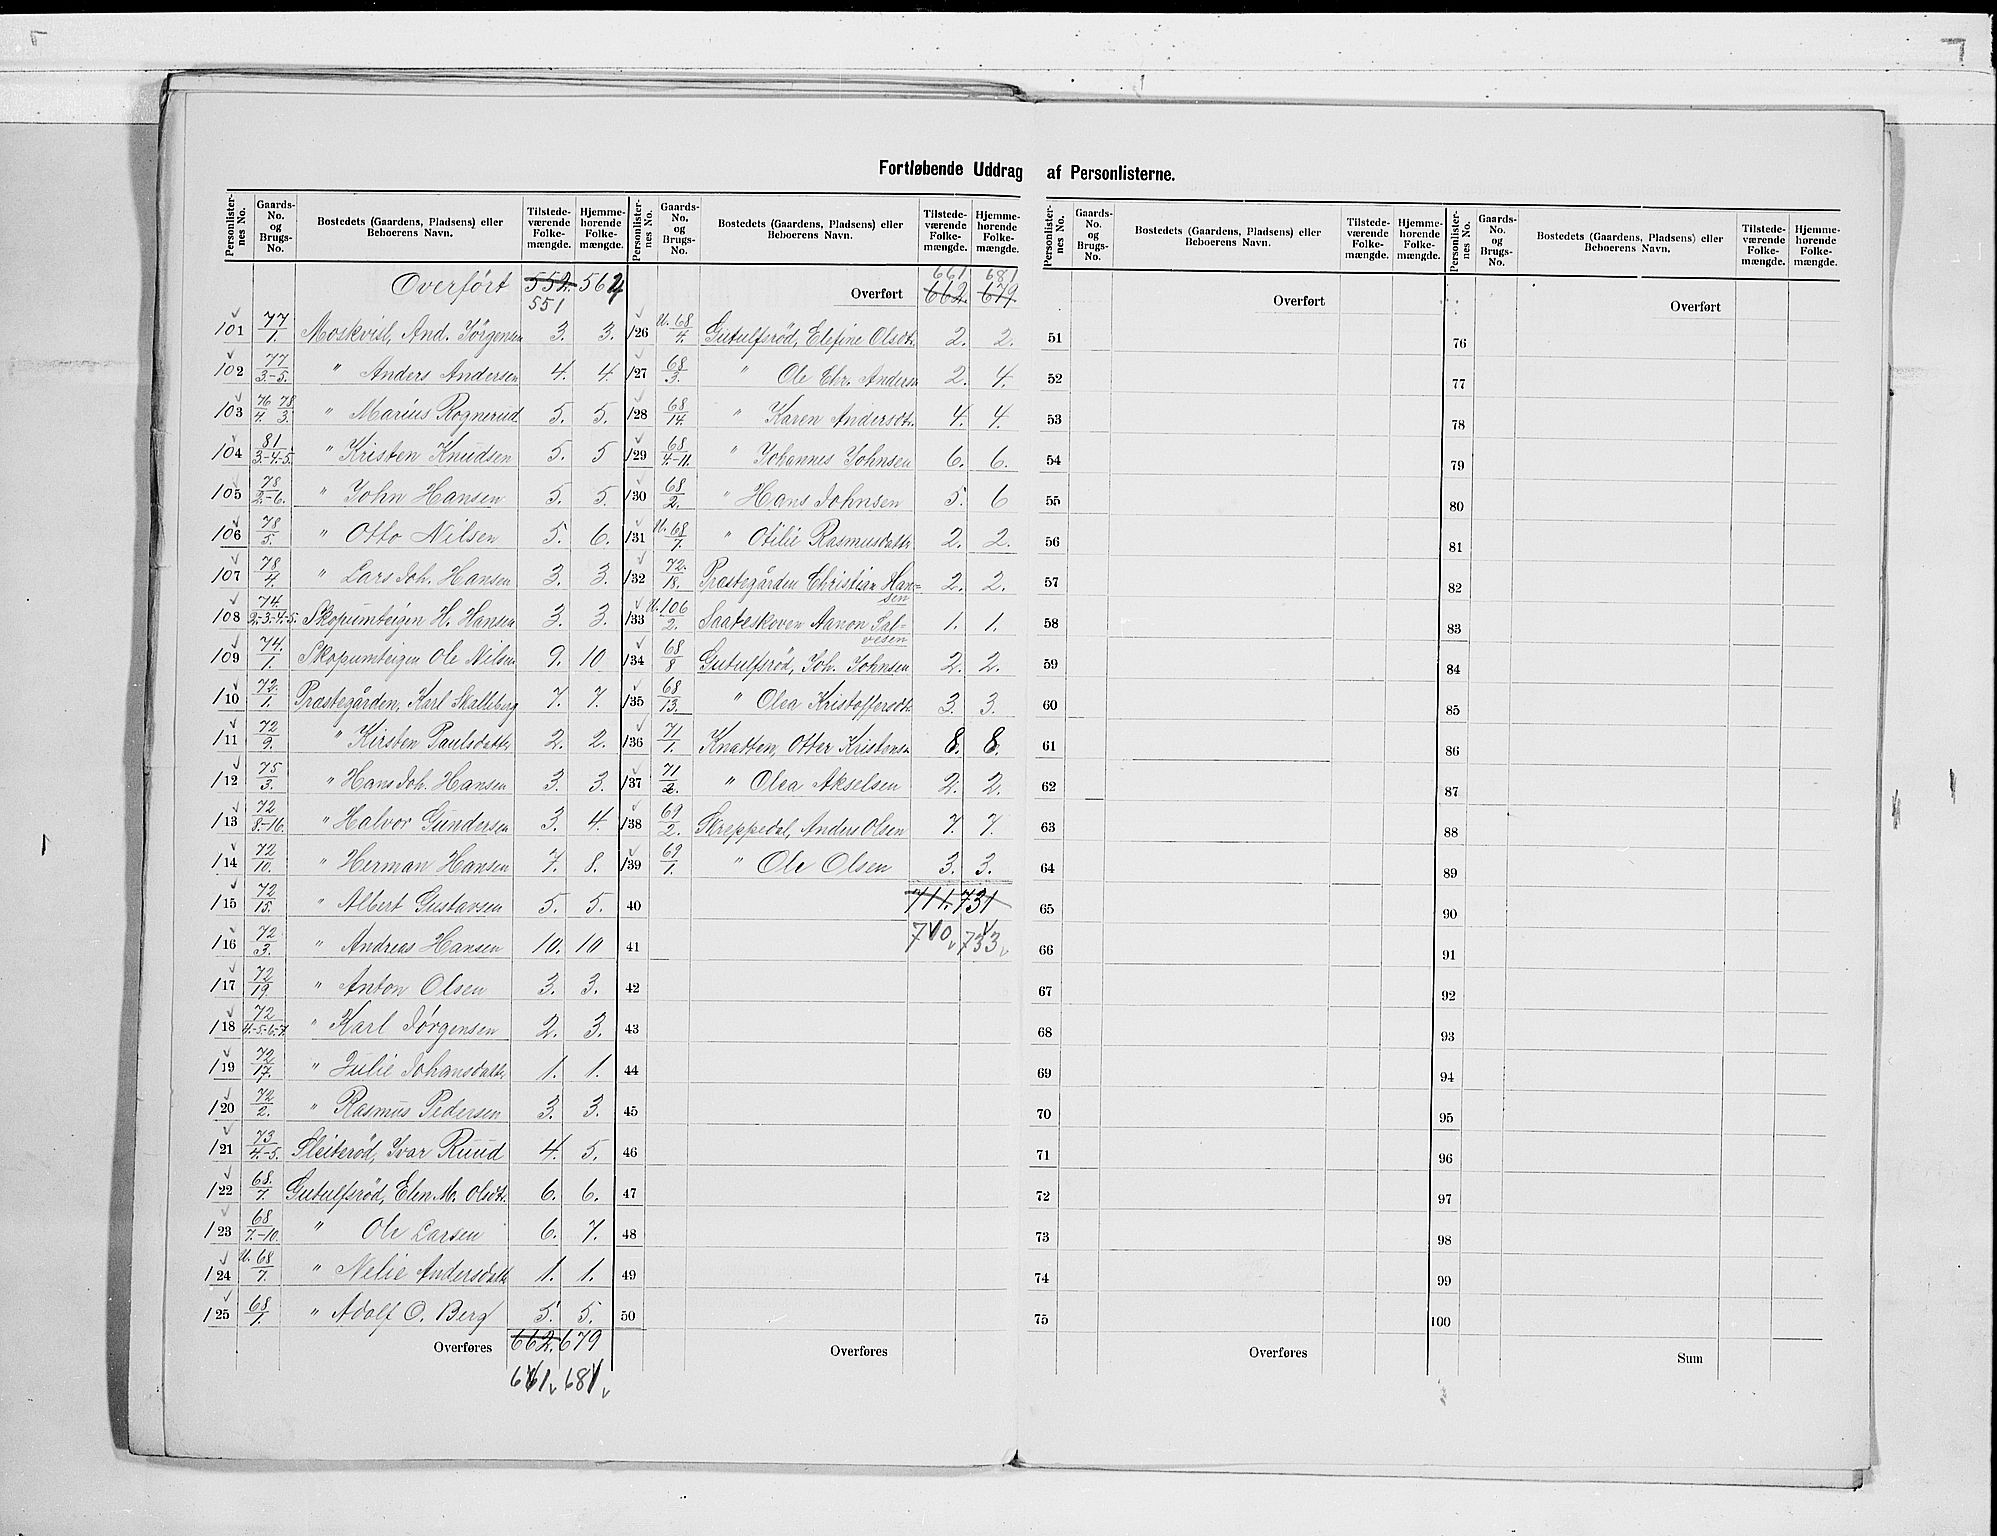 Fortløbende Uddrag af Personlisterne.
Personlister-nes No. | Gaards-No. og Brugs-No. | Bostedets (Gaardens, Pladsens) eller Beboerens Navn. | Tilstede-værende Folke-mængde. | Hjemme-hørende Folke-mængde.
Overført 552. 564
551
101 77/1. Moskvisl, And. Jørgensen 3. 3.
102 77/3.-5. " Anders Andersen 4. 4.
103 76/4. 78/3. " Marius Rognerud 5. 5.
104 81/3.-4.-5. " Kristen Knudsen 5. 5
105 78/2.-6. " John Hansen 5. 5.
106 78/5. " Otto Nilsen 5. 6.
107 78/4. " Lars Joh. Hansen 3. 3.
108 74./2.-3.-4.-5. Skopumteigen H. Hansen 3. 3.
109 74./1. Skopumteigen Ole Nilsen 9. 10.
110 72./1. Præstegården, Karl Skalleberg 7. 7.
111 72/9. " Kirsten Paulsdatt. 2. 2.
112 75/3. " Hans Joh. Hansen 3. 3.
113 72/8.-16. " Halvor Gundersen 3. 4.
114 72/10. " Herman Hansen 7. 8.
115 72/15. " Albert Gustavsen 5. 5.
116 72/3. " Andreas Hansen 10. 10
117 72/19. " Anton Olsen 3. 3.
118 72/4.-5.-6.-7. " Karl Jørgensen 2. 3.
119 72/17. " Julie Johansdatt. 1. 1.
120 72/2. " Rasmus Pedersen 3. 3.
121 73/4.-5. Sleiterød, Ivar Ruud 4. 5.
122 68./7. Gutulfsrød, Elen M. Olsdt. 6. 6.
123 68/7.-10. " Ole Larsen 6. 7.
124 U. 68/7. " Nelie Andersdatt. 1. 1.
125 68/1. " Adolf O. Berg 5. 5.
Overføres 662. 679
661 681
Personlister-nes No. | Gaards-No. og Brugs-No. | Bostedets (Gaardens, Pladsens) eller Beboerens Navn. | Tilstede-værende Folke-mængde. | Hjemme-hørende Folke-mængde.
661 681
Overført 662. 679.
126 U. 68/4. Gutulfsrød, Elefine Olsdt. 2. 2.
127 68/3. " Ole Chr. Andersn 2. 4.
128 68/14. " Karen Andersdt. 4. 4.
129 68/4.-11. " Johannes Johnsen 6. 6.
130 68/2. " Hans Johnsen 5. 6
131 U. 68/7. " Otilie Rasmusdatt. 2. 2.
132 72./18. Præstegården Christian Han-sen 2. 2.
133 U. 106/2. Saateskoven Aanon Sal-vesen 1. 1.
134 68/8 Gutulfsrød, Joh. Johnsen 2. 2.
135 68/13. " Olea Kristoffersdt. 3. 3.
136 71/1. Knatten, Otter Kristens. 8. 8.
137 71/2. " Olea Akselsen 2. 2.
138 69/2. Skreppedal, Anders Olsen 7. 7.
139 69/1. " Ole Olsen 3. 3.
40 711. 731
41 710 733
42
43
44
45
46
47
48
49
50
Overføres
Personlister-nes No. | Gaards-No. og Brugs-No. | Bostedets (Gaardens, Pladsens) eller Beboerens Navn. | Tilstede-værende Folke-mængde. | Hjemme-hørende Folke-mængde.
Overført
51
52
53
54
55
56
57
58
59
60
61
62
63
64
65
66
67
68
69
70
71
72
73
74
75
Overføres
Personlister-nes No. | Gaards-No. og Brugs-No. | Bostedets (Gaardens, Pladsens) eller Beboerens Navn. | Tilstede-værende Folke-mængde. | Hjemme-hørende Folke-mængde.
Overført
76
77
78
79
80
81
82
83
84
85
86
87
88
89
90
91
92
93
94
95
96
97
98
99
100
Sum